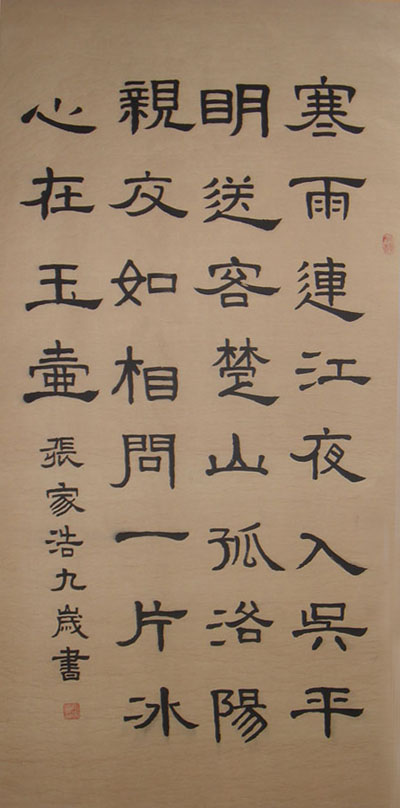 寒雨連江夜入吳平
明送客楚山孤洛陽
親友如相問一片冰
心在玉壺
張家浩九歲書